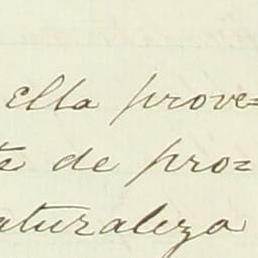 Ella prove=
te de pro=
naturaleza